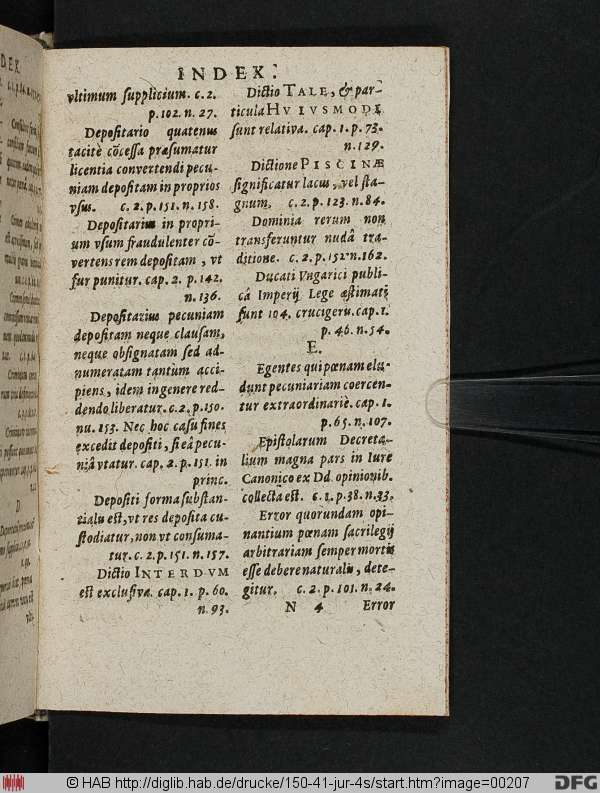 INDEX.
vltimum supplicium. c. 2.
p. 102. n. 27.
Depositario quatenus
tacitè cõcessa præsumatur
licentia convertendi pecu-
niam depositam in proprios
vsus. c. 2. p. 151. n. 158.
Depositarius in propri-
um vsum fraudulenter cõ-
vertens rem depositam, vt
fur punitur. cap. 2. p. 142.
n. 136.
Depositarius pecuniam
depositam neque clausam,
neque obsignatam sed ad-
numeratam tantùm acci-
piens, idem in genere red-
dendo liberatur. c. 2. p. 150.
nu. 153. Nec hoc casu fines
excedit depositi, si eâ pecu-
niâ vtatur. cap. 2. p. 151. in
princ.
Depositi forma substan-
tialis est, vt res deposita cu-
stodiatur, non vt consuma-
tur. c. 2. p. 151. n. 157.
Dictio INTERDVM
est exclusiva. cap. 1. p. 60.
n. 93.
Dictio TALE, & par-
ticula HVIVSMODI
sunt relativa. cap. 1. p. 73.
n. 129.
Dictione PISCINÆ
significatur lacus, vel sta-
gnum, c. 2. p. 123. n. 84.
Dominia rerum non
transferuntur nudâ tra-
ditione. c. 2. p. 152. n. 162.
Ducati Vngarici publi-
câ Imperij Lege æstimati
sunt 104. crucigeru. cap. 1.
p. 46. n. 54.
E.
Egentes qui pœnam elu-
dunt pecuniariam coercen-
tur extraordinariè. cap. 1.
p. 65. n. 107.
Epistolarum Decreta-
lium magna pars in Iure
Canonico ex Dd. opinionib.
collecta est. c. 1. p. 38. n. 33.
Error quorundam opi-
nantium pœnam sacrilegij
arbitrariam semper mortis
esse debere naturalis, dete-
gitur. c. 2. p. 101. n. 24.
N 4 Error
© HAB http://diglib.hab.de/drucke/150-41-jur-4s/start.htm?image=00207
DFG